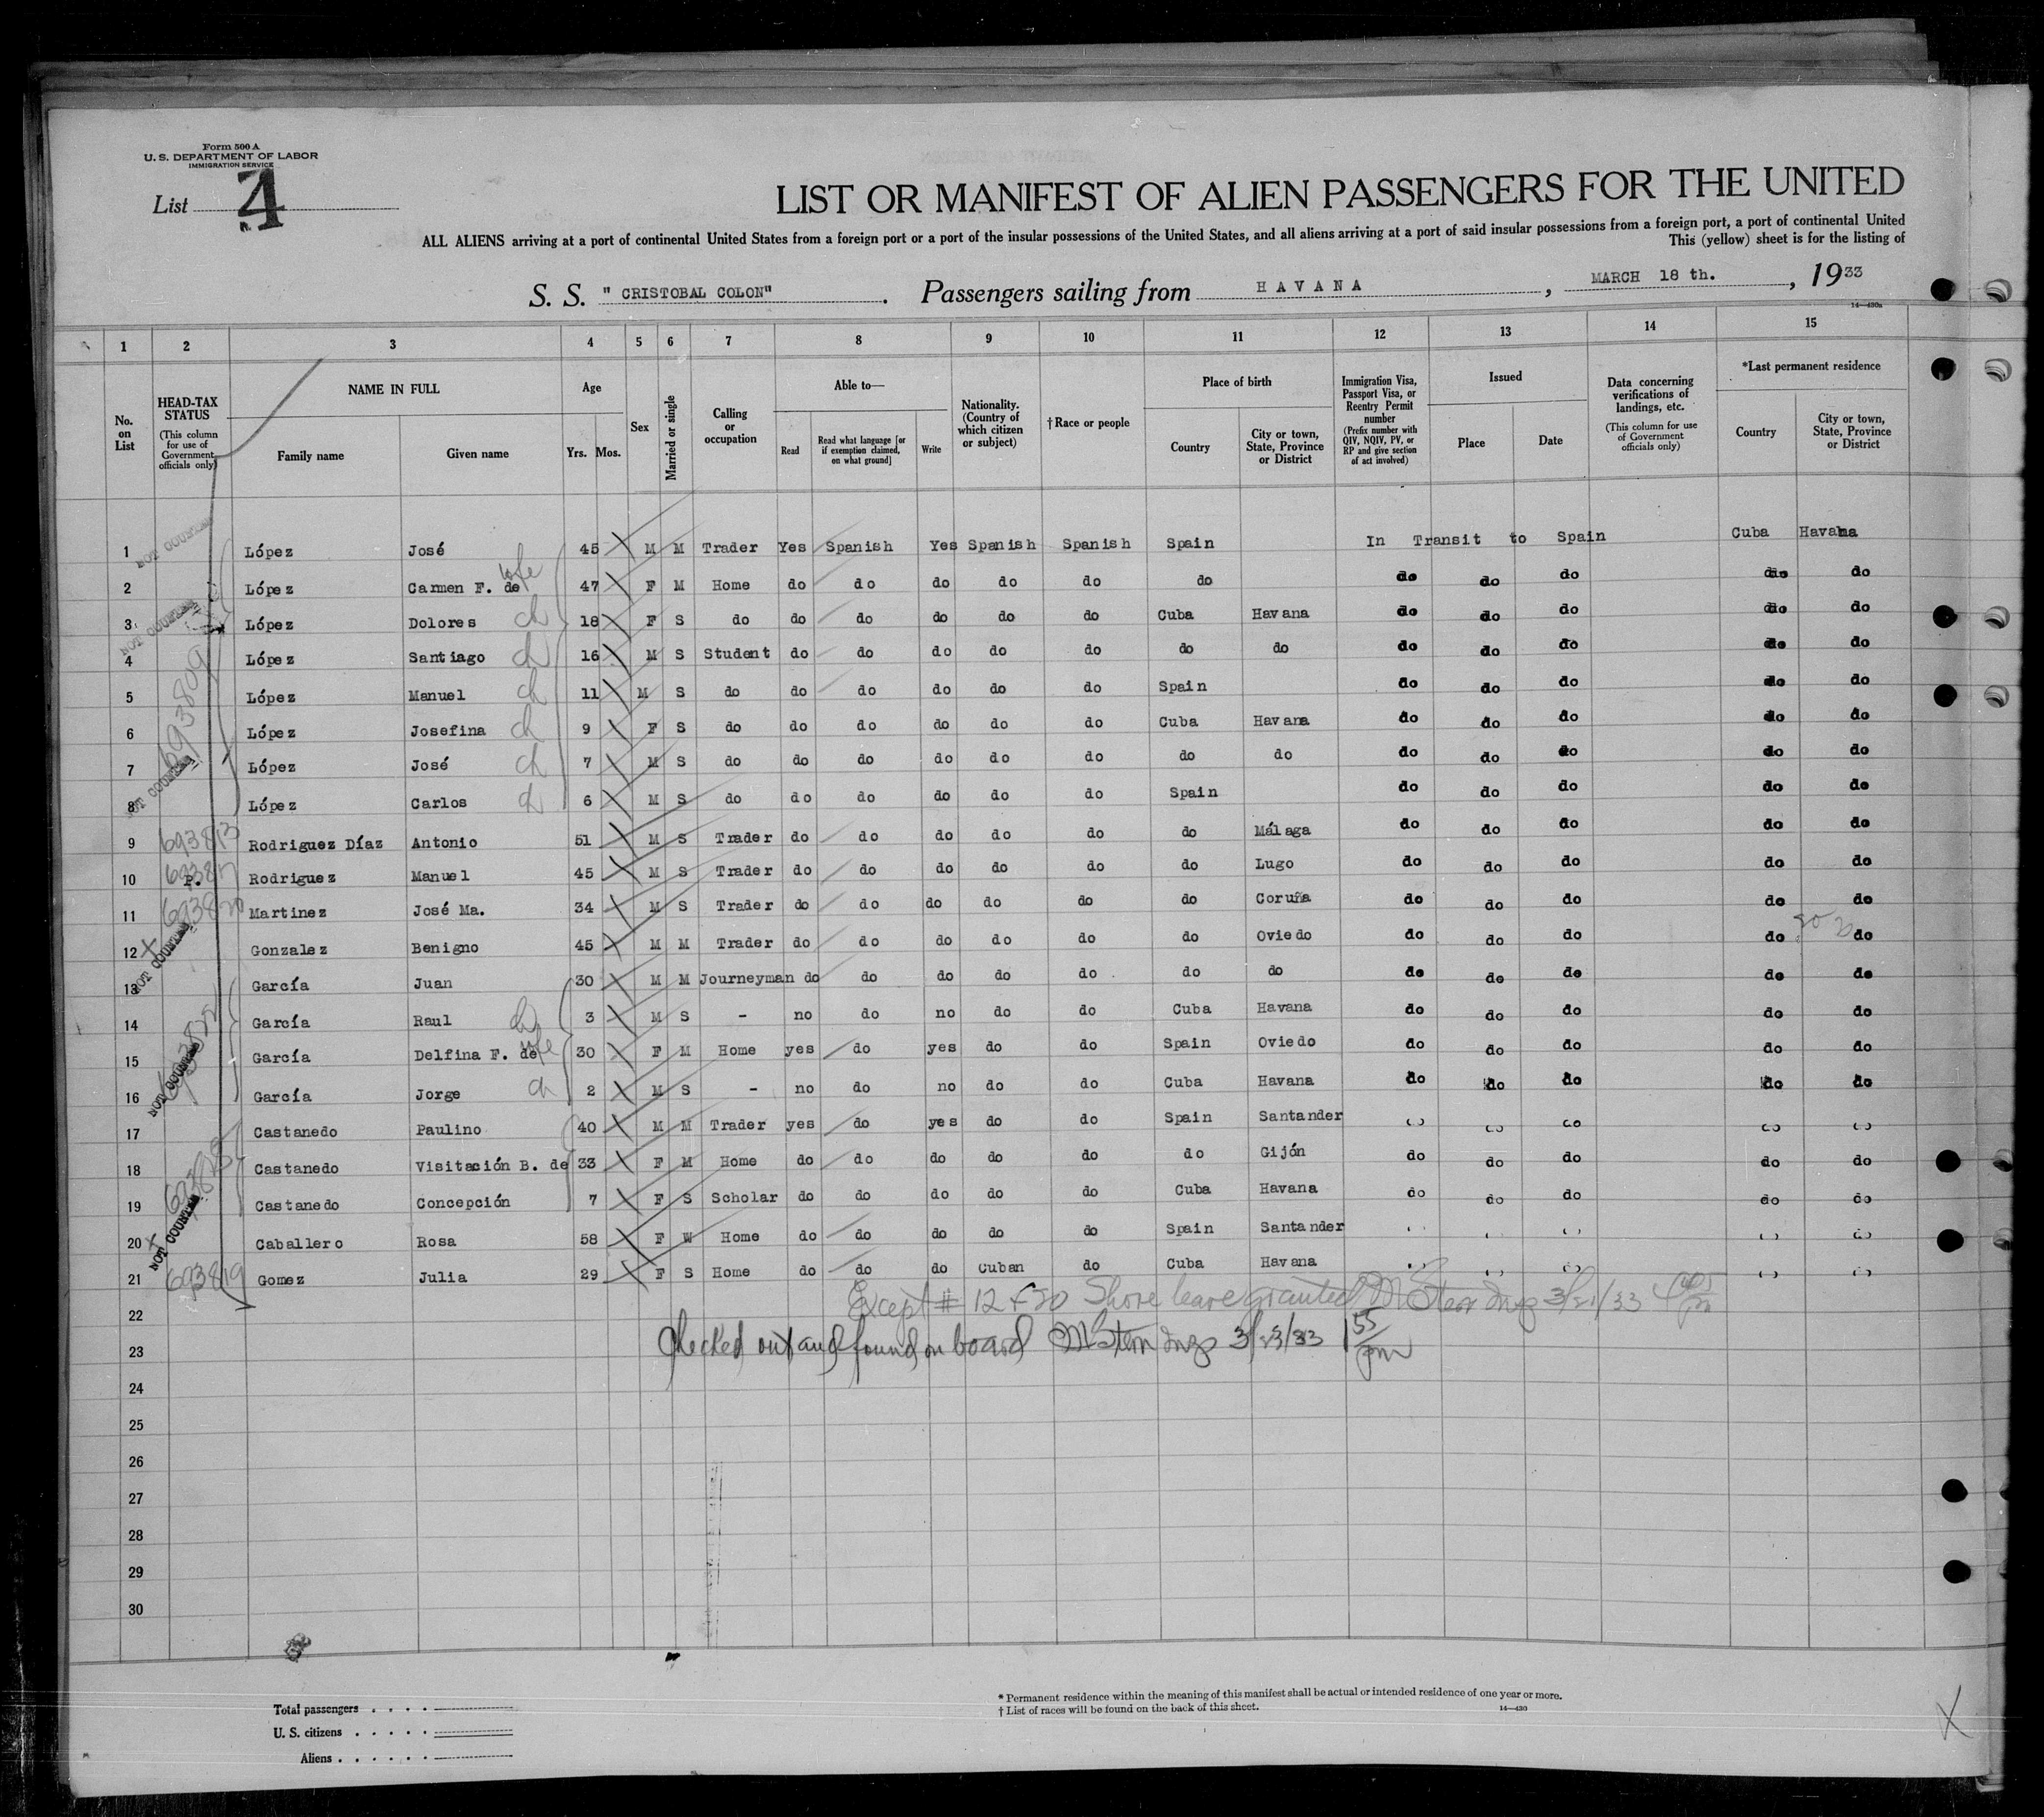 Form 500 A
U. S. DEPARTMENT OF LABOR
IMMIGRATION SERVICE
List 4
LIST OR MANIFEST OF ALIEN PASSENGERS FOR THE UNITED
ALL ALIENS arriving at a port of continental United States from a foreign port or a port of the insular possessions of the United States, and all aliens arriving at a port of said insular possessions from a foreign port, a port of continental United
This (yellow) sheet is for the listing of
S. S. " CRISTOBAL COLON" . Passengers sailing from H A V A N A , MARCH 18 th. , 1933
14—430a
1 2 3 4 5 6 7 8 9 10 11 12 13 14 15
No. on List
HEAD-TAX STATUS (This column for use of Government officials only)
NAME IN FULL
Family name
Given name
Age
Yrs. Mos.
Sex
Married or single
Calling or occupation
Able to—
Read
Read what language [or if exemption claimed, on what ground]
Write
Nationality. (Country of which citizen or subject)
† Race or people
Place of birth
Country
City or town, State, Province or District
Immigration Visa, Passport Visa, or Reentry Permit number (Prefix number with QIV, NQIV, PV, or RP and give section of act involved)
Issued
Place
Date
Data concerning verifications of landings, etc. (This column for use of Government officials only)
*Last permanent residence
Country
City or town, State, Province or District
1 NOT COUNTED López José 45 M M Trader Yes Spanish Yes Spanish Spanish Spain In Transit to Spain Cuba Havana
2 López Carmen F. de wife 47 F M Home do do do do do do do do do do do
3 NOT COUNTED López Dolores ch 18 F S do do do do do do Cuba Havana do do do do do
4 López Santiago ch 16 M S Student do do do do do do do do do do do do
5 693809 López Manuel ch 11 M S do do do do do do Spain do do do do do
6 López Josefina ch 9 F S do do do do do do Cuba Havana do do do do do
7 López José ch 7 M S do do do do do do do do do do do do do
8 NOT COUNTED López Carlos ch 6 M S do do do do do do Spain do do do do do
9 693813 Rodriguez Díaz Antonio 51 M S Trader do do do do do do Málaga do do do do do
10 P. Rodriguez Manuel 45 M S Trader do do do do do do Lugo do do do do do
11 693820 Martinez José Ma. 34 M S Trader do do do do do do Coruña do do do do do
12 X NOT COUNTED Gonzalez Benigno 45 M M Trader do do do do do do Oviedo do do do do do
13 García Juan 30 M M Journeyman do do do do do do do do do do do do
14 García Raul ch 3 M S - no do no do do Cuba Havana do do do do do
15 García Delfina F. de wife 30 F M Home yes do yes do do Spain Oviedo do do do do do
16 NOT COUNTED García Jorge ch 2 M S - no do no do do Cuba Havana do do do do do
17 Castanedo Paulino 40 M M Trader yes do yes do do Spain Santander do do do do do
18 Castanedo Visitación B. de 33 F M Home do do do do do do Gijón do do do do do
19 Castanedo Concepción 7 F S Scholar do do do do do Cuba Havana do do do do do
20 X NOT COUNTED Caballero Rosa 58 F W Home do do do do do Spain Santander
21 693819 Gomez Julia 29 F S Home do do do Cuban do Cuba Havana
22 Except # 12 & 20 Shore leave granted M Stern Insp 3/21/33
23 Checked out and found on board M Stern Insp 3/23/33 1 55 pm
24
25
26
27
28
29
30
Total passengers . . . .
U. S. citizens . . . . .
Aliens . . . . . .
* Permanent residence within the meaning of this manifest shall be actual or intended residence of one year or more.
† List of races will be found on the back of this sheet.
14—430
X